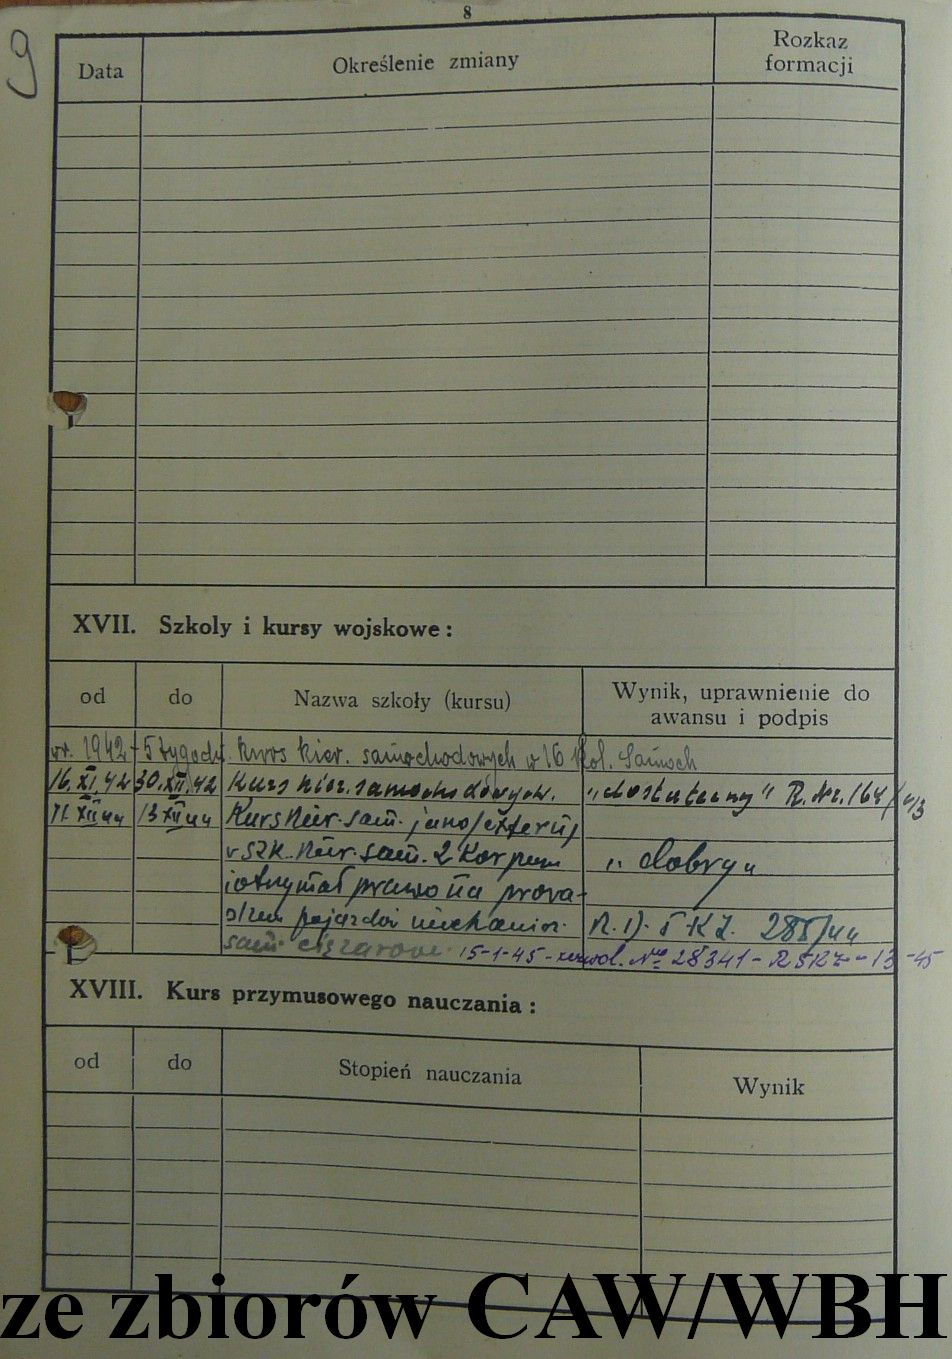 9
8
Data Określenie zmiany Rozkaz formacji
XVII. Szkoly i kursy wojskowe :
od do Nazwa szkoły (kursu) Wynik, uprawnienie do awansu i podpis
wr. 1942 - 5 tygodn. Kurs kier. samochodowych w 16 Kol. Samoch
16.XI.42 30.XII.42 Kurs kier. samochodowych. „dostateczny" R. Nr. 164/43
11.XII44 13XII44 Kurs kier. sam.
w szk. kier. sam. 2 Korpusu „dobry"
i otrzymał prawo na prowa-
dzen pojazdów mechanicz. 285/44
sam ciężarowe. 15-1-45 - zezwol. No 28341 - 13 -45
XVIII. Kurs przymusowego nauczania :
od do Stopień nauczania Wynik
ze zbiorów CAW/WBH